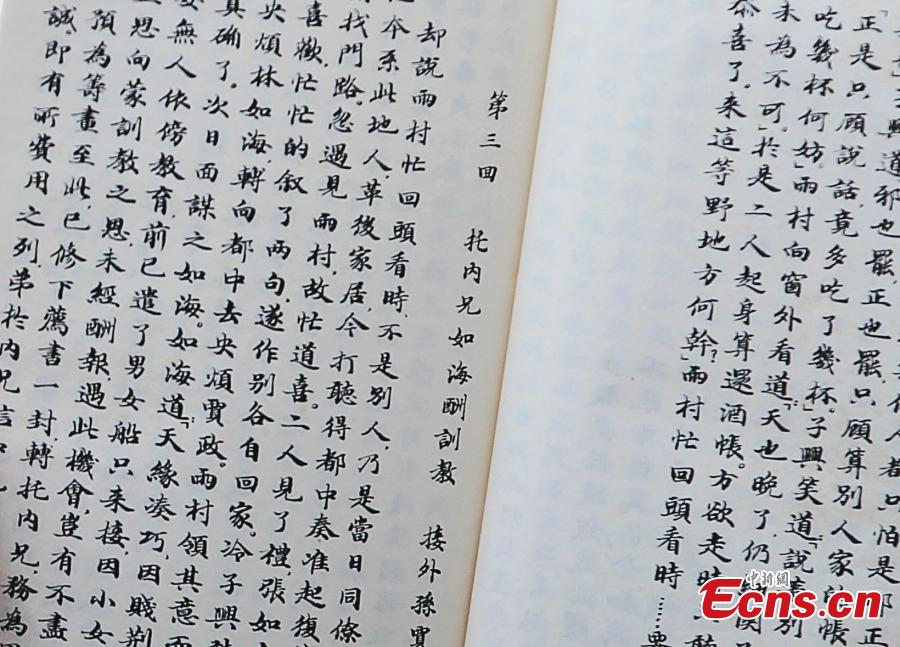 人都只怕是那正
興道邪也罷,正也罷,只顧算別人家的帳
「正是,只顧說話,竟多吃了幾杯。」子興笑道:「說著別
吃幾杯何妨。」雨村向窗外看道:「天也晚了,仍
未為不可。」於是二人起身,算還酒帳。方欲走時,聽
恭喜了。來這等野地方何幹?」雨村忙回頭看時……要
第三回 托內兄如海酬訓教 接外孫賈
却說雨村忙回頭看時,不是別人,乃是當日同僚
本系此地人,革後家居,今打聽得都中奏准起復
找門路。忽遇見雨村,故忙道喜。二人見了禮,張如
喜歡,忙忙的叙了兩句,遂作別各自回家。冷子興
央煩林如海,轉向都中去央煩賈政。雨村領其意而
真确了。次日面謀之如海。如海道:「天緣湊巧,因賤荊
無人依傍教育,前已遣了男女船只來接,因小女
思向蒙訓教之恩,未經酬報,遇此機會,豈有不盡
預為籌畫至此,已修下薦書一封,轉托內兄,務為
誠。即有所費用之列,弟於內兄信中
中新網
Ecns.cn